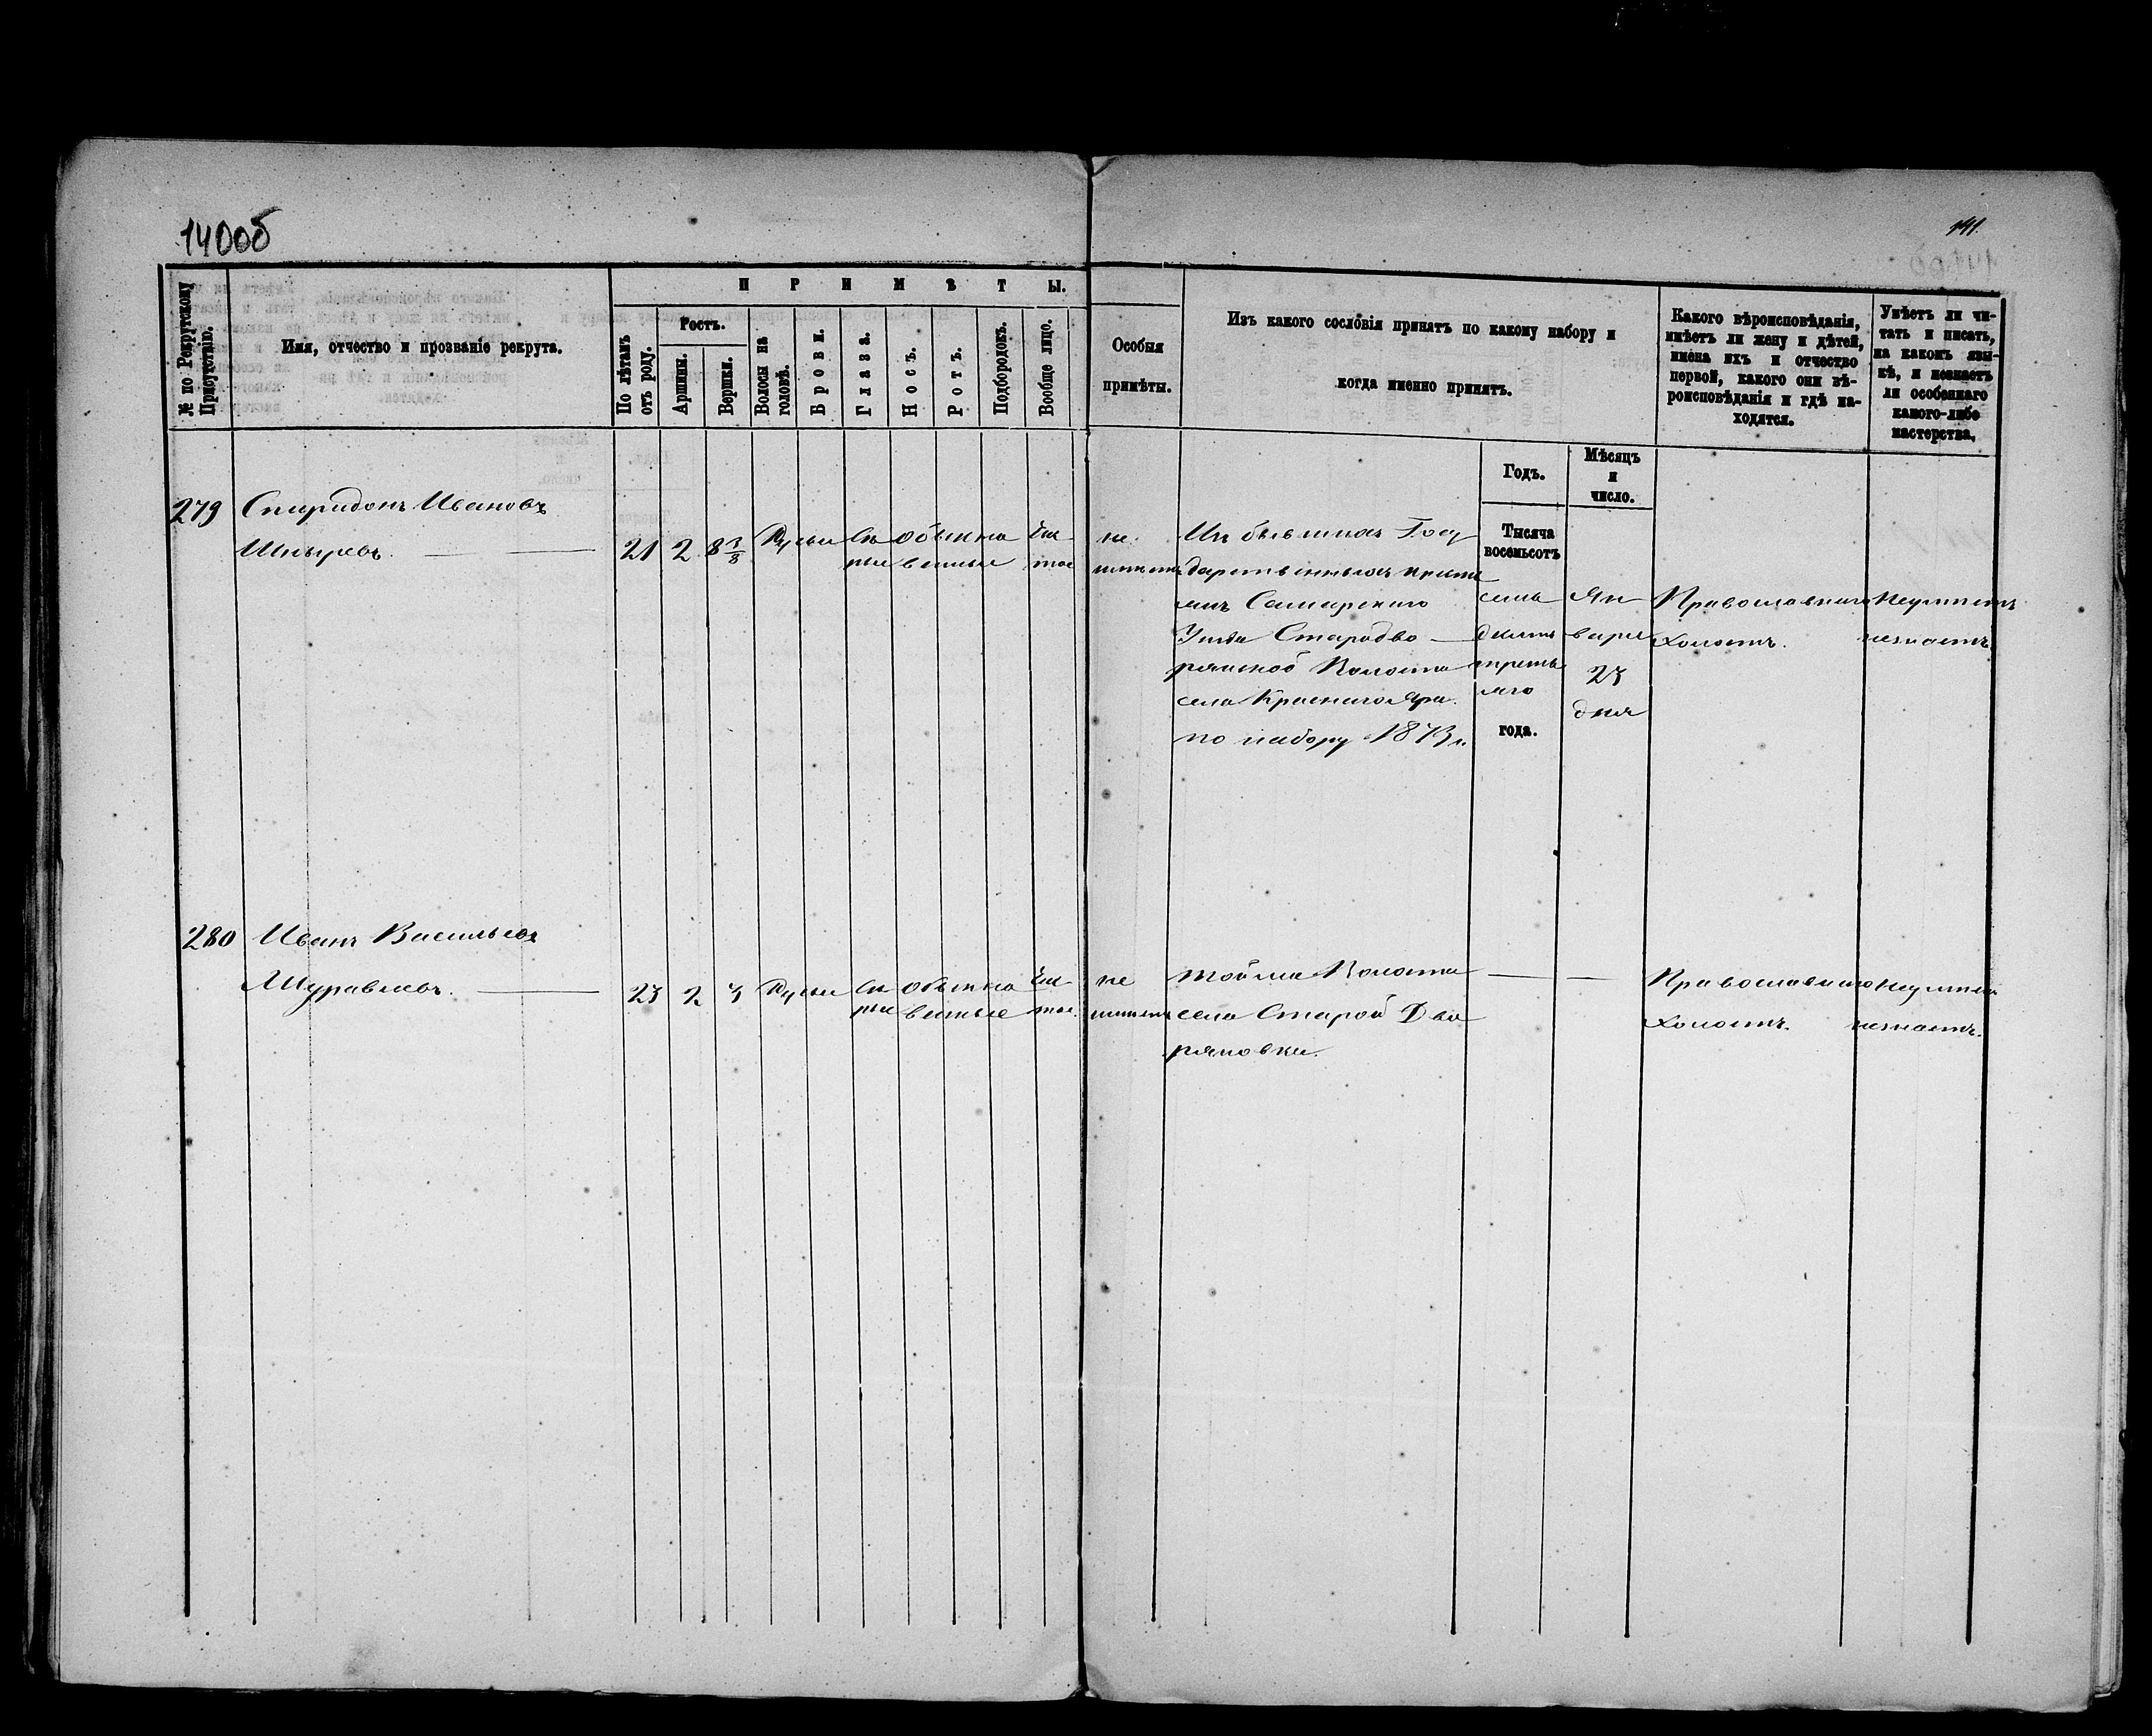 140об
141.
№ по Рекрутскому Присутствію.
Имя, отчество и прозваніе рекрута.
ПРИМѢТЫ.
По лѣтамъ отъ роду.
Ростъ.
Аршины.
Вершки.
Волосы на головѣ.
Брови.
Глаза.
Носъ.
Ротъ.
Подбородокъ.
Вообще лицо.
Особыя
примѣты.
Изъ какого сословія принятъ по какому набору и
когда именно принятъ.
Какого вѣроисповѣданія,
имѣетъ ли жену и дѣтей,
имена ихъ и отчество
первой, какого они вѣ-
роисповѣданія и гдѣ на-
ходятся.
Умѣетъ ли чи-
тать и писать,
на какомъ язы-
кѣ, и незнаетъ
ли особеннаго
какого-либо
мастерства.
Годъ.
Мѣсяцъ
и
число.
279 Спиридонъ Ивановъ
21 2 8 7/8 Русые Сѣ обыкно чис
рые венные тое
не
имѣетъ
Изъ бывшихъ Госу
дарственныхъ кресть
янъ Самарскаго
Уѣзда Стародво
рянской Волости
села Краснаго Яра.
по набору 1873 г.
Тысяча
восемьсотъ
семь
десятъ
треть
яго
года.
Ян
варя
23
дня
Православнаго
холостъ.
неумѣетъ
незнаетъ.
280 Иванъ Васильевъ
Журавлевъ. 23 2 3 Русые Сѣ обыкно чис
рые венные тое.
не
имѣетъ
той же Волости
села Старой Дво
ряновки.
Православнаго
холостъ.
неумѣетъ
незнаетъ.